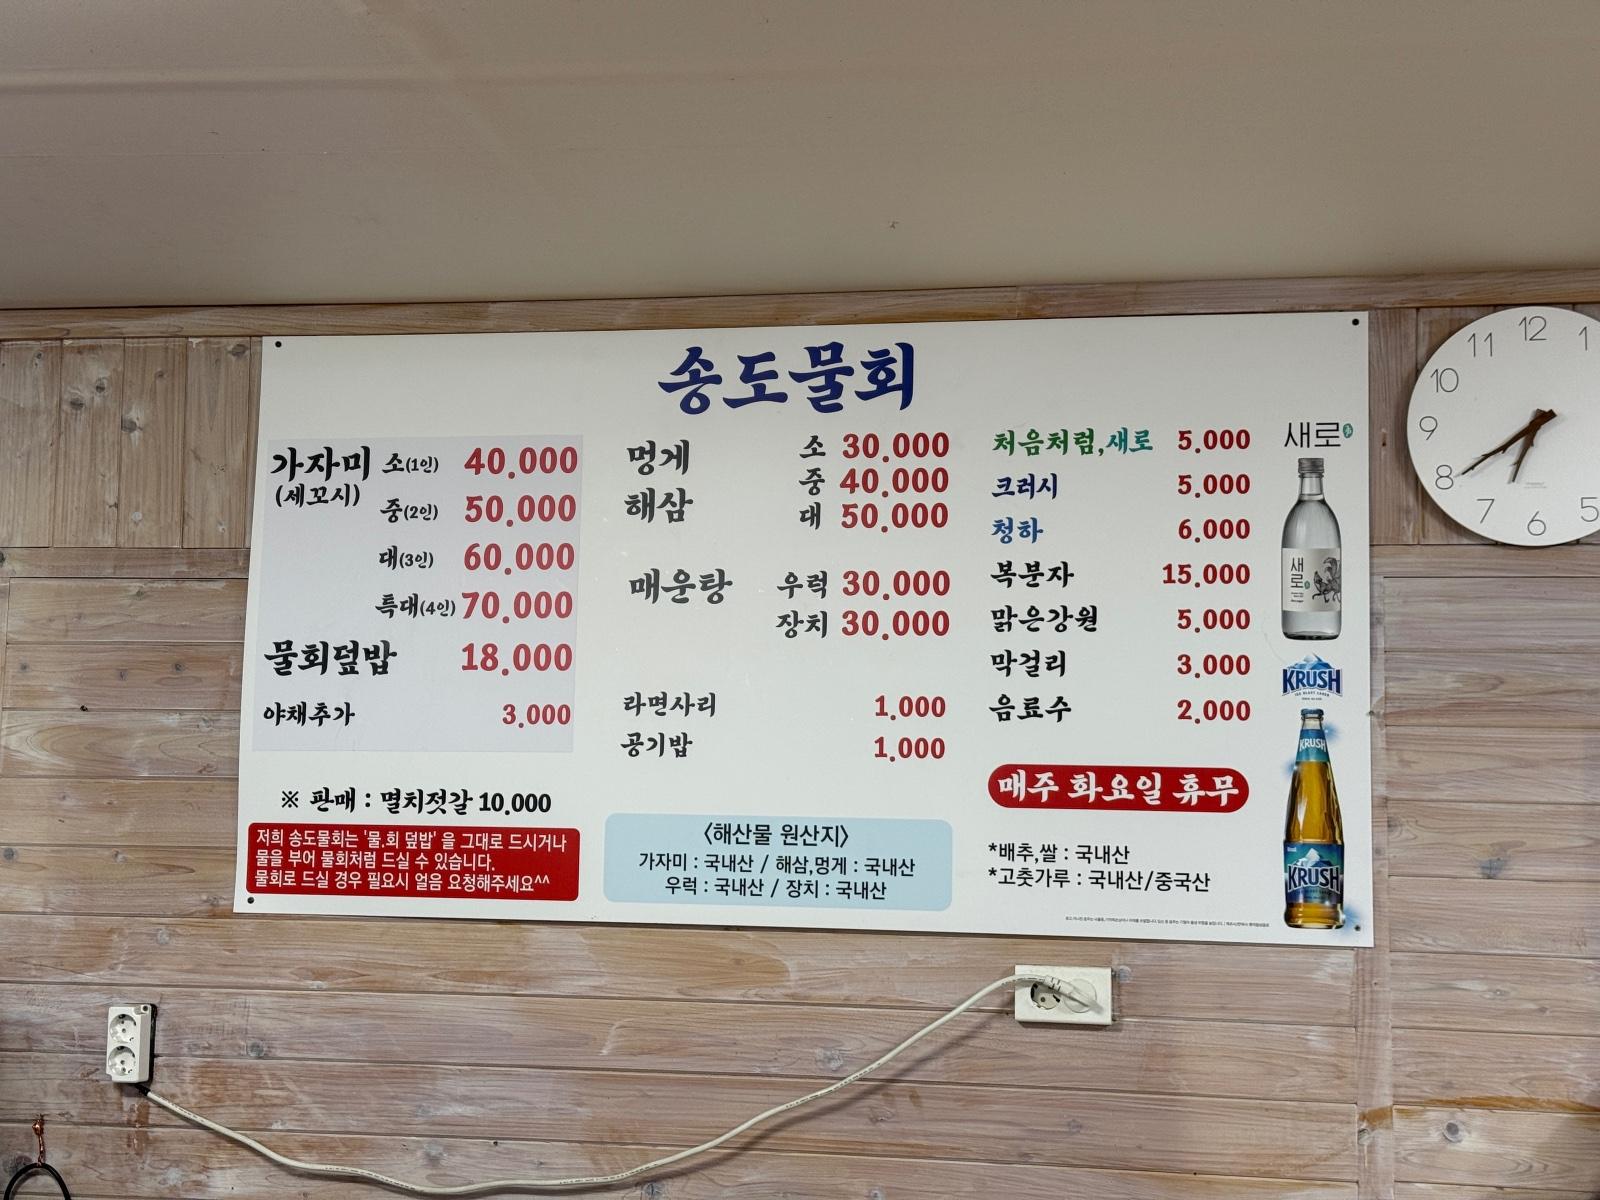 송도물회
가자미 소(1인) 40.000
(세꼬시)
중(2인) 50.000
대(3인) 60.000
특대(4인) 70.000
물회덮밥 18.000
야채추가 3.000
※ 판매 : 멸치젓갈 10.000
저희 송도물회는 '물.회 덮밥' 을 그대로 드시거나
물을 부어 물회처럼 드실 수 있습니다.
물회로 드실 경우 필요시 얼음 요청해주세요^^
멍게 소 30.000
중 40.000
해삼 대 50.000
매운탕 우럭 30.000
장치 30.000
라면사리 1.000
공기밥 1.000
〈해산물 원산지〉
가자미 : 국내산 / 해삼,멍게 : 국내산
우럭 : 국내산 / 장치 : 국내산
처음처럼,새로 5.000
크러시 5.000
청하 6.000
복분자 15.000
맑은강원 5.000
막걸리 3.000
음료수 2.000
매주 화요일 휴무
*배추,쌀 : 국내산
*고춧가루 : 국내산/중국산
새로
새로
KRUSH
KRUSH
KRUSH
12
1
11
10
9
8
7
6
5